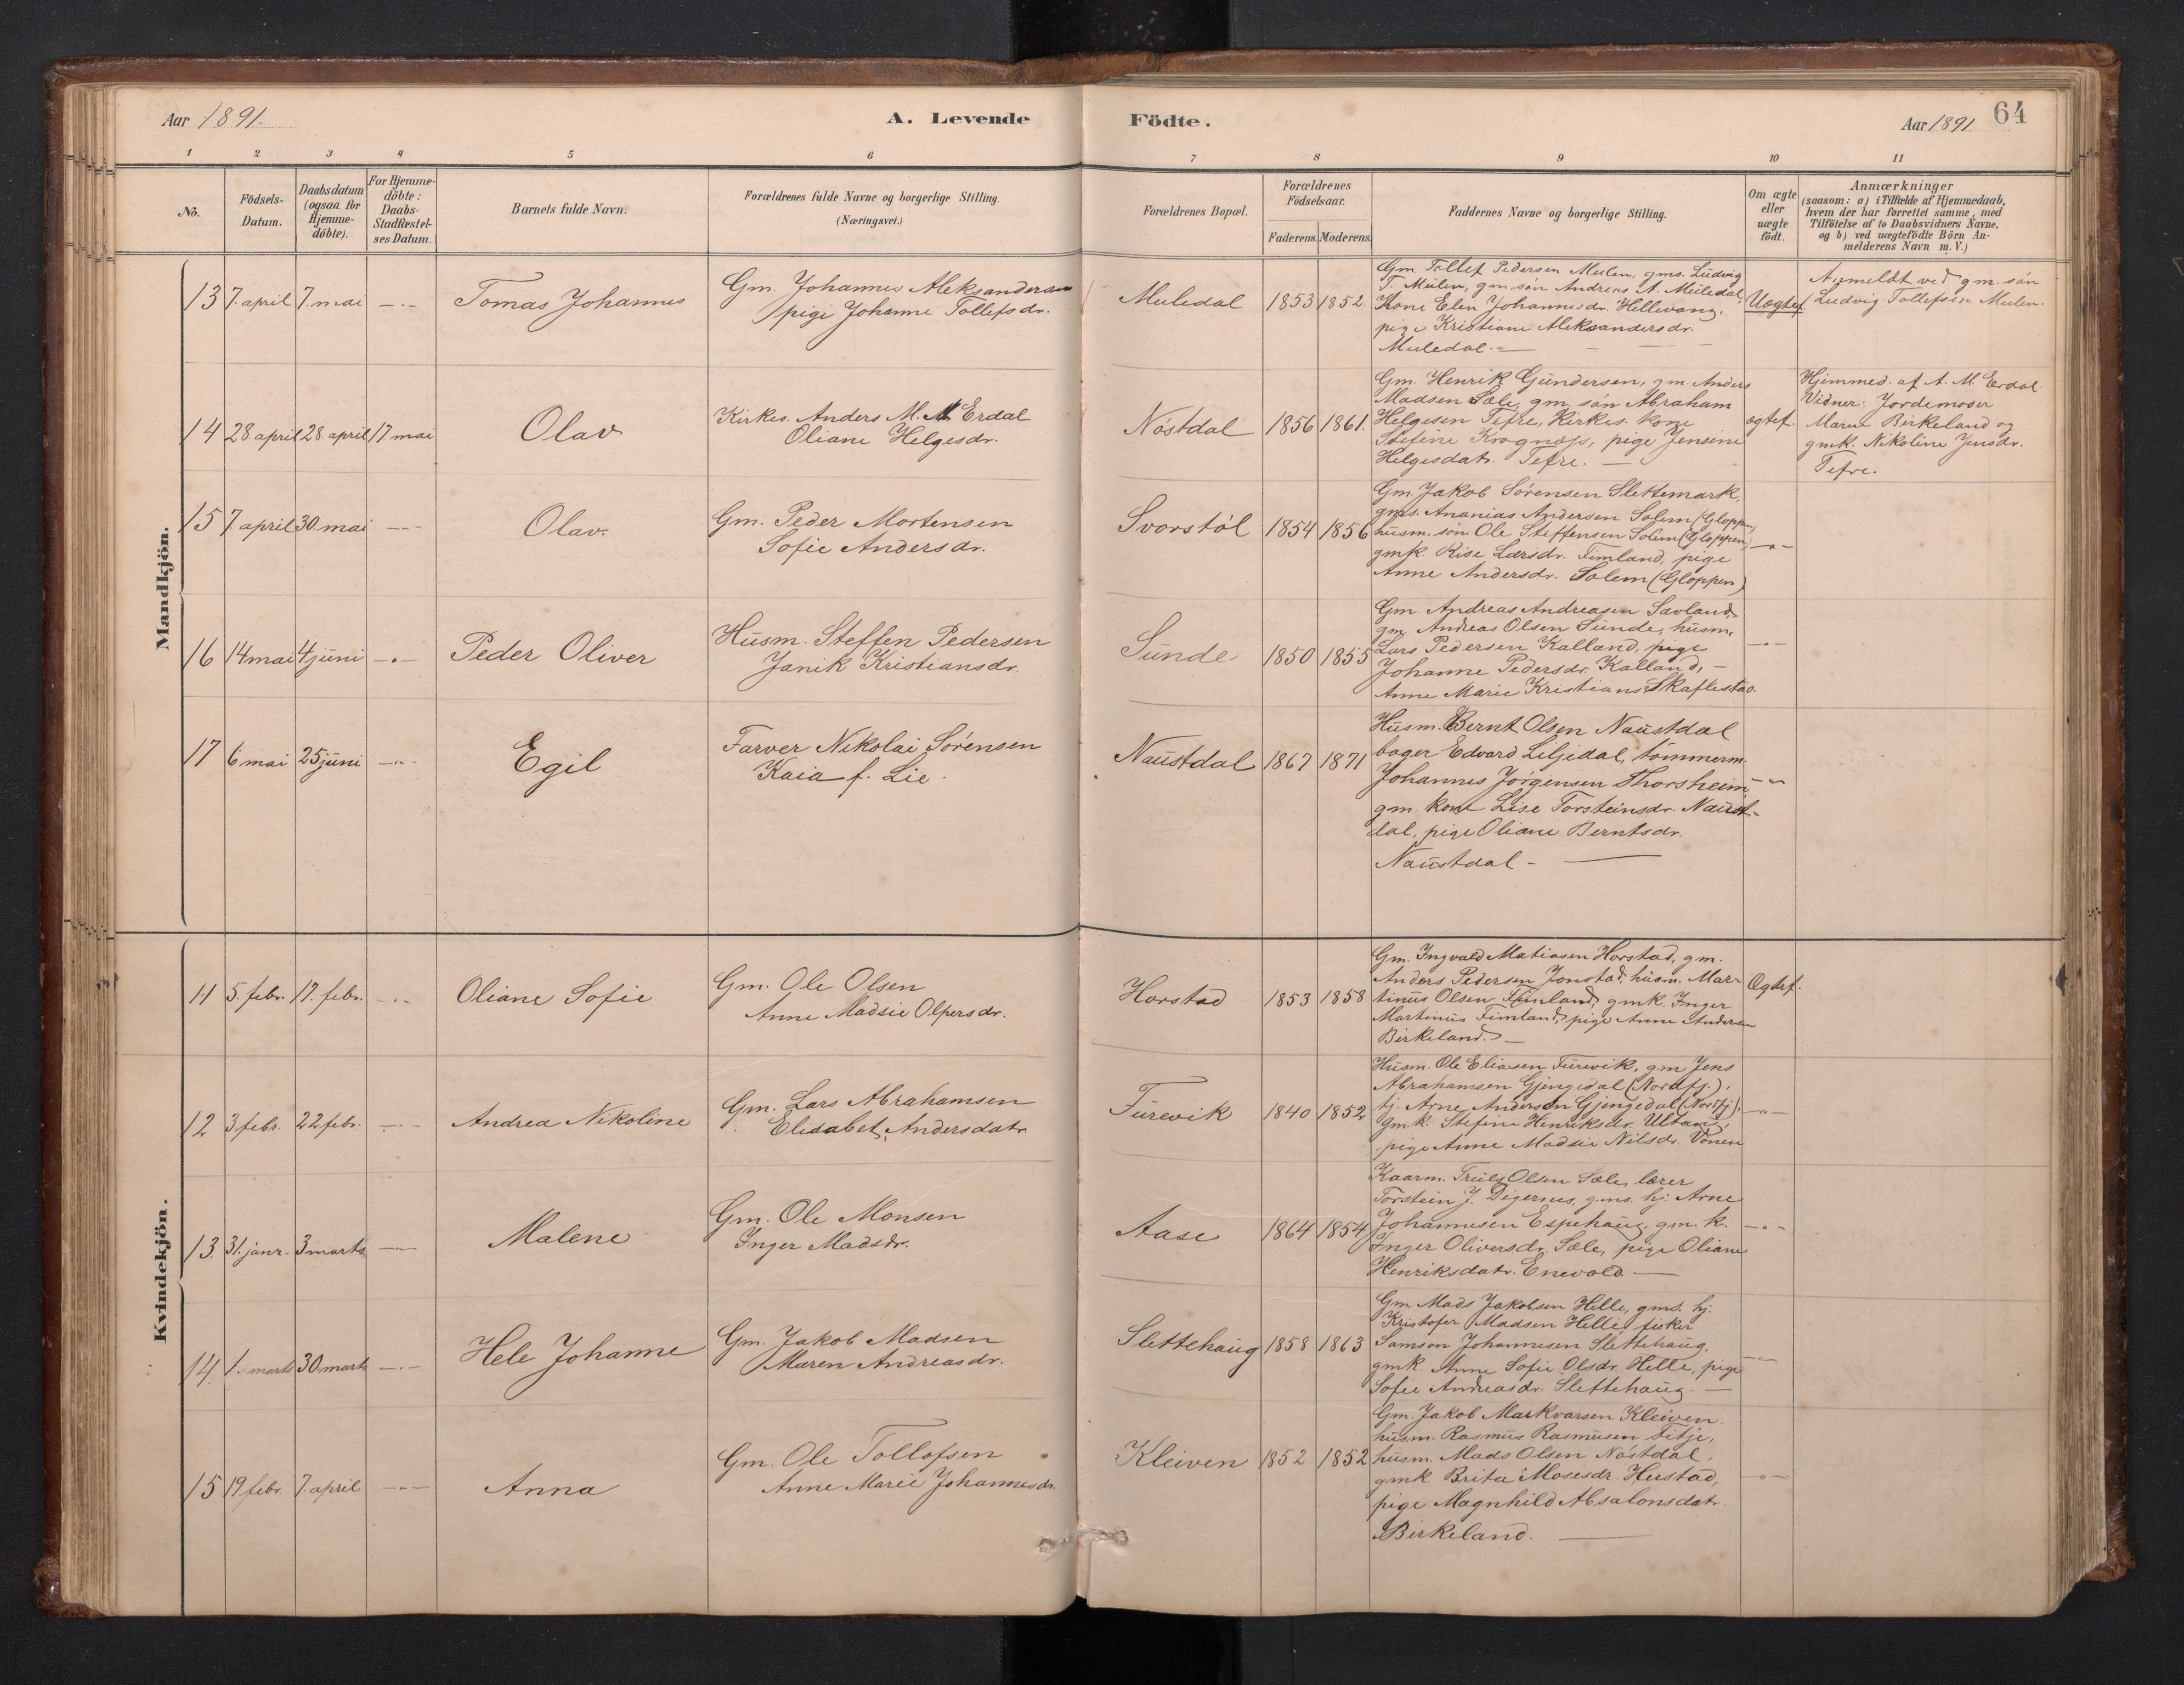 Aar 1891.
A. Levende Födte.
Aar 1891
64
1 2 3 4 5 6 7 8 9 10 11
No.
Födsels-Datum.
Daabsdatum (ogsaa for Hjemme-döbte).
For Hjemme-döbte: Daabs-Stadfæstel-ses Datum.
Barnets fulde Navn.
Forældrenes fulde Navne og borgerlige Stilling.
(Næringsvei.)
Forældrenes Bopæl.
Forældrenes Födselsaar.
Faderens. Moderens.
Faddernes Navne og borgerlige Stilling.
Om ægte eller uægte födt.
Anmærkninger
(saasom: a) i Tilfælde af Hjemmedaab,
hvem der har forrettet samme, med
Tilföielse af to Daabsvidners Navne.
og b) ved uægtefödte Börn An-
melderens Navn m. V.)
Mandkjön.
13 7. april 7. mai -"- Tomas Johannes
Gm. Johannes Aleksandersen
pige Johanne Tollefsdr.
Muledal 1853 1852.
Gm. Tollef Pedersen Mulen, gms. Ludvig
T. Mulen, gm. søn Andreas A. Muledal,
Kone Elen Johannesdr. Hellevang,
pige Kristiane Aleksandersdr.
Muledal. —
Uægtef.
Anmeldt ved gm. søn
Ludvig Tollefsen Mulen.
14 28 april 28 april 17 mai Olav
Kirkes. Anders M. Erdal
Oliane Helgesdr.
Nøstdal 1856 1861.
Gm. Henrik Gundersen, gm. Anders
Madsen Sæle, gm. søn Abraham
Helgesen Tefre, Kirkes. kone
Stefine Krognæss, pige Jensine
Helgesdatr. Tefre. —
ægtef.
Hjemmed. af A. M. Erdal.
Vidner: Jordemoder
Maren Birkeland og
gmk. Nikoline Jensdr.
Tefre.
15 7. april 30. mai -"- Olav.
Gm. Peder Mortensen
Sofie Andersdr.
Svorstøl 1854 1856
Gm. Jakob Sørensen Slettemark,
gms. Ananias Andersen Solem (Gloppen)
husm. søn Ole Steffensen Solem (Gloppen)
gmk. Rise Larsdr. Fimland, pige
Anne Andersdr. Solem (Gloppen)
-"-
16 14 mai 4 juni -"- Peder Oliver
Husm. Steffen Pedersen
Janik Kristiansdr.
Sunde 1850 1855
Gm. Andreas Andreasen Savland,
gm. Andreas Olsen Sunde, husm.
Lars Pedersen Kalland, pige
Johanne Pedersdr. Kalland, —
Anne Marie Kristians Skaflestad.
-"-
17 6 mai 25 juni -"- Egil
Farver Nikolai Sørensen
Kaia f. Lie.
Naustdal 1867 1871
Husm. Bernt Olsen Naustdal
bager Edvard Liljedal, tømmerm.
Johannes Jørgensen Thorsheim,
gm. kone Lise Torsteinsdr. Naust-
dal, pige Oliane Berntsdr.
Naustdal —
-"-
Kvindekjön.
11 5. febr. 17. febr. -"- Oliane Sofie
Gm. Ole Olsen
Anne Madsie Olpersdr.
Horstad 1853 1858
Gm. Ingvald Matiasen Horstad, gm.
Anders Pedersen Jonstad, husm. Mar-
tinus Olsen Fimland, gmk. Inger
Martinus Fimland, pige Anne Andersen
Birkeland. —
Ægtef.
12 3 febr. 22 febr. -"- Andrea Nikoline
Gm. Lars Abrahamsen
Elisabet Andersdatr.
Furevik 1840 1852
Husm. Ole Eliasen Furevik, gm Jens
Abrahamsen Gjengedal (Nordfj.),
tj. Arne Andersen Gjengedal (Nordfj.),
gm.k. Stefine Henriksdr. Ultang,
pige Anne Madsie Nilsdr. Vonen
-"-
13. 31. janr. 3 marts -"- Malene
Gm. Ole Monsen
Inger Madsdr.
Aase 1864 1854
Kaarm. Truls Olsen Sæle, lærer
Torstein J. Degernes, gms. hj. Arne
Johannesen Espehaug, gm. k.
Inger Oliversdr. Sæle, pige Oliane
Henriksdatr. Enevold —
-"-
14. 1. marts 30 marts -"- Hele Johanne
Gm. Jakob Madsen
Maren Andreasdr.
Slettehaug 1858 1863
Gm. Mads Jakobsen Helle, gms. hj.
Kristofer Madsen Helle, fisker
Samson Johannesen Slettehaug,
gmk. Anne Sofie Olsdr. Helle, pige
Sofie Andreasdr. Slettehaug. —
-"-
15 19 febr. 7. april -"- Anna
Gm. Ole Tollefsen
Anne Marie Johannesdr.
Kleiven 1852 1852
Gm. Jakob Markvarsen Kleiven
husm. Rasmus Rasmusen Fitje,
husm. Mads Olsen Nøstdal,
gmk Brita Mosesdr. Hustad,
pige Magnhild Absalonsdatr.
Birkeland. —
-"-